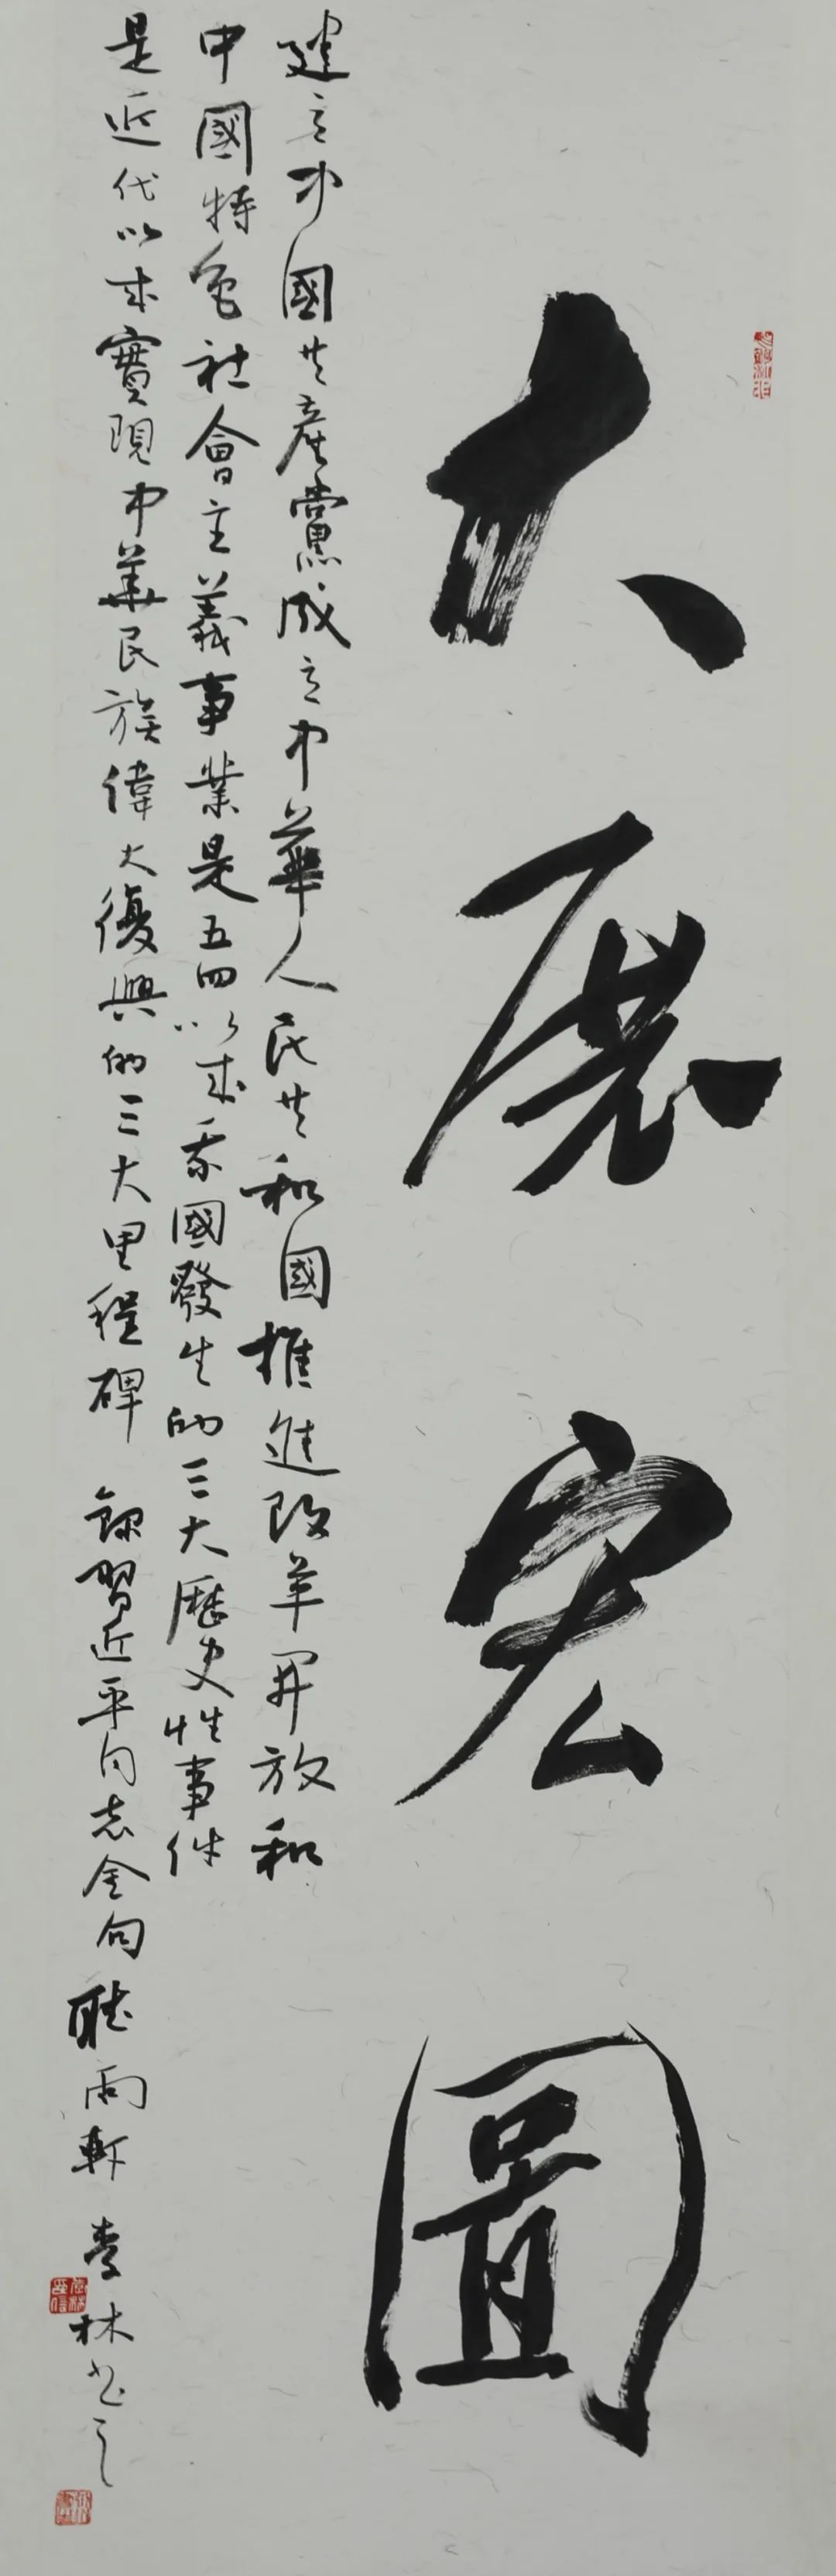 大展宏圖
建立中國共產黨成立中華人民共和國推進改革開放和
中國特色社會主義事業是五四以來我國發生的三大歷史性事件
是近代以來實現中華民族偉大復興的三大里程碑 錄習近平同志金句 聽雨軒 李林書之